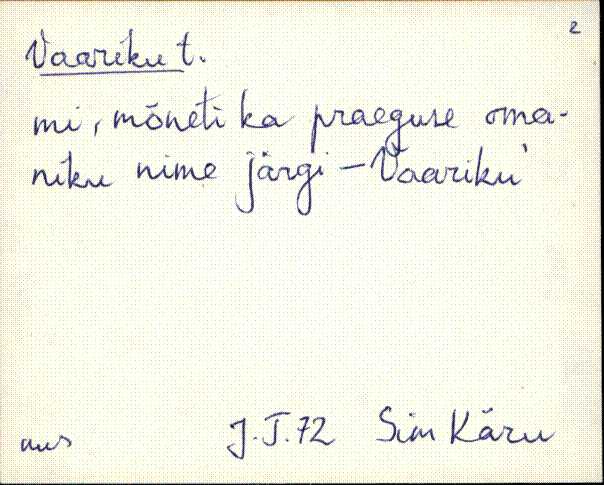 2
Vaariku t.
mi, mõneti ka praeguse oma-
niku nime järgi – Vaariku'
J.T.72 Sim Käru